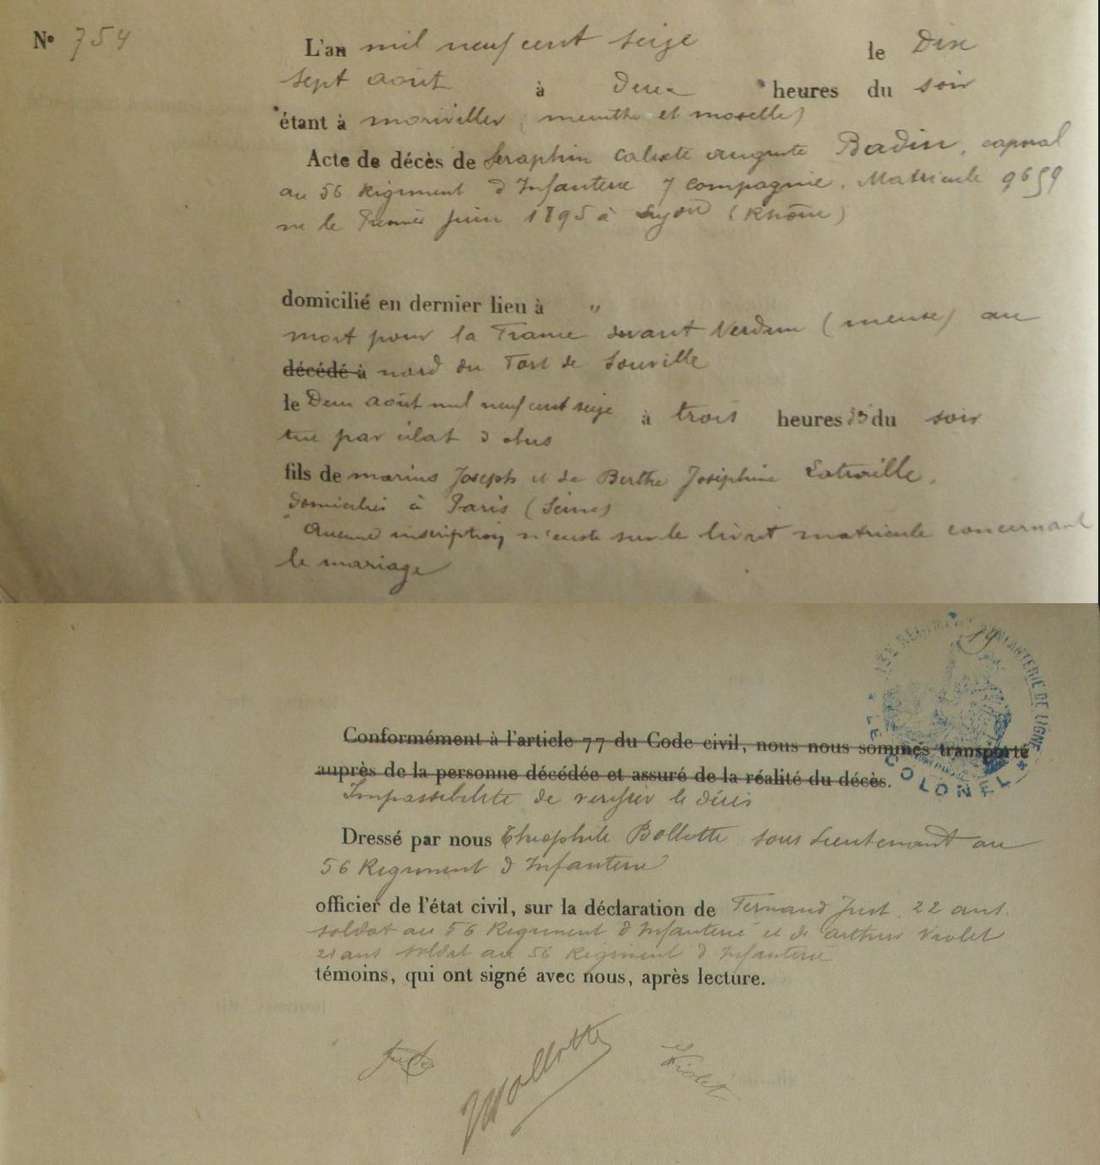 N° 754
L'an mil neuf cent seize le Dix
sept août à Deux heures du soir
étant à moriviller (meurthe et moselle)
Acte de décès de Seraphin Calixte auguste Badin, caporal
au 56 Regiment d'Infanterie 7 Compagnie, Matricule 9659
né le Premier juin 1895 à Lyon (Rhône)
domicilié en dernier lieu à "
mort pour la France devant Verdun (meuse) au
décédé à nord du Fort de Souville
le Deux août mil neuf cent seize à trois heures du soir
tué par éclat d obus
fils de marius Joseph et de Berthe Joséphine
domiciliés à Paris (Seine)
Aucune inscription n'existe sur le livret matricule concernant
le mariage
RÉGIMENT D'INFANTERIE DE LIGNE
LE COLONEL
Conformément à l'article 77 du Code civil, nous nous sommes transporté
auprès de la personne décédée et assuré de la réalité du décès.
Impossibilité de verifier le décès
Dressé par nous Théophile Bollotte sous Lieutenant au
56 Regiment d Infanterie
officier de l'état civil, sur la déclaration de Fernand Just 22 ans
soldat au 56 Regiment d Infanterie et de arthur Violet
21 ans soldat au 56 Regiment d Infanterie
témoins, qui ont signé avec nous, après lecture.
Just Bollotte Violet